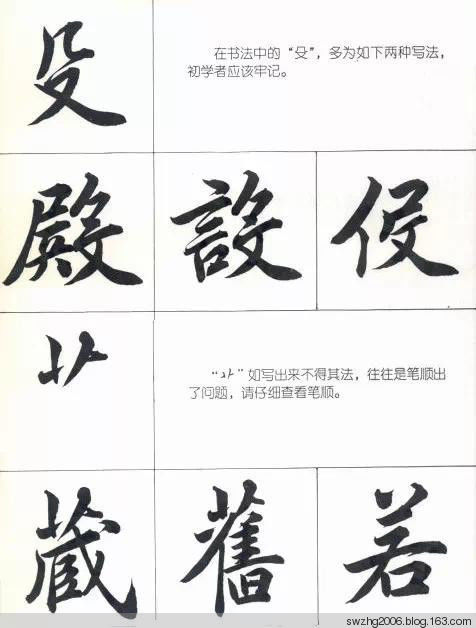 殳
在书法中的“殳”，多为如下两种写法，
初学者应该牢记。
殿 設 役
艹
“艹”如写出来不得其法，往往是笔顺出
了问题，请仔细查看笔顺。
藏 舊 若
swzhg2006.blog.163.com